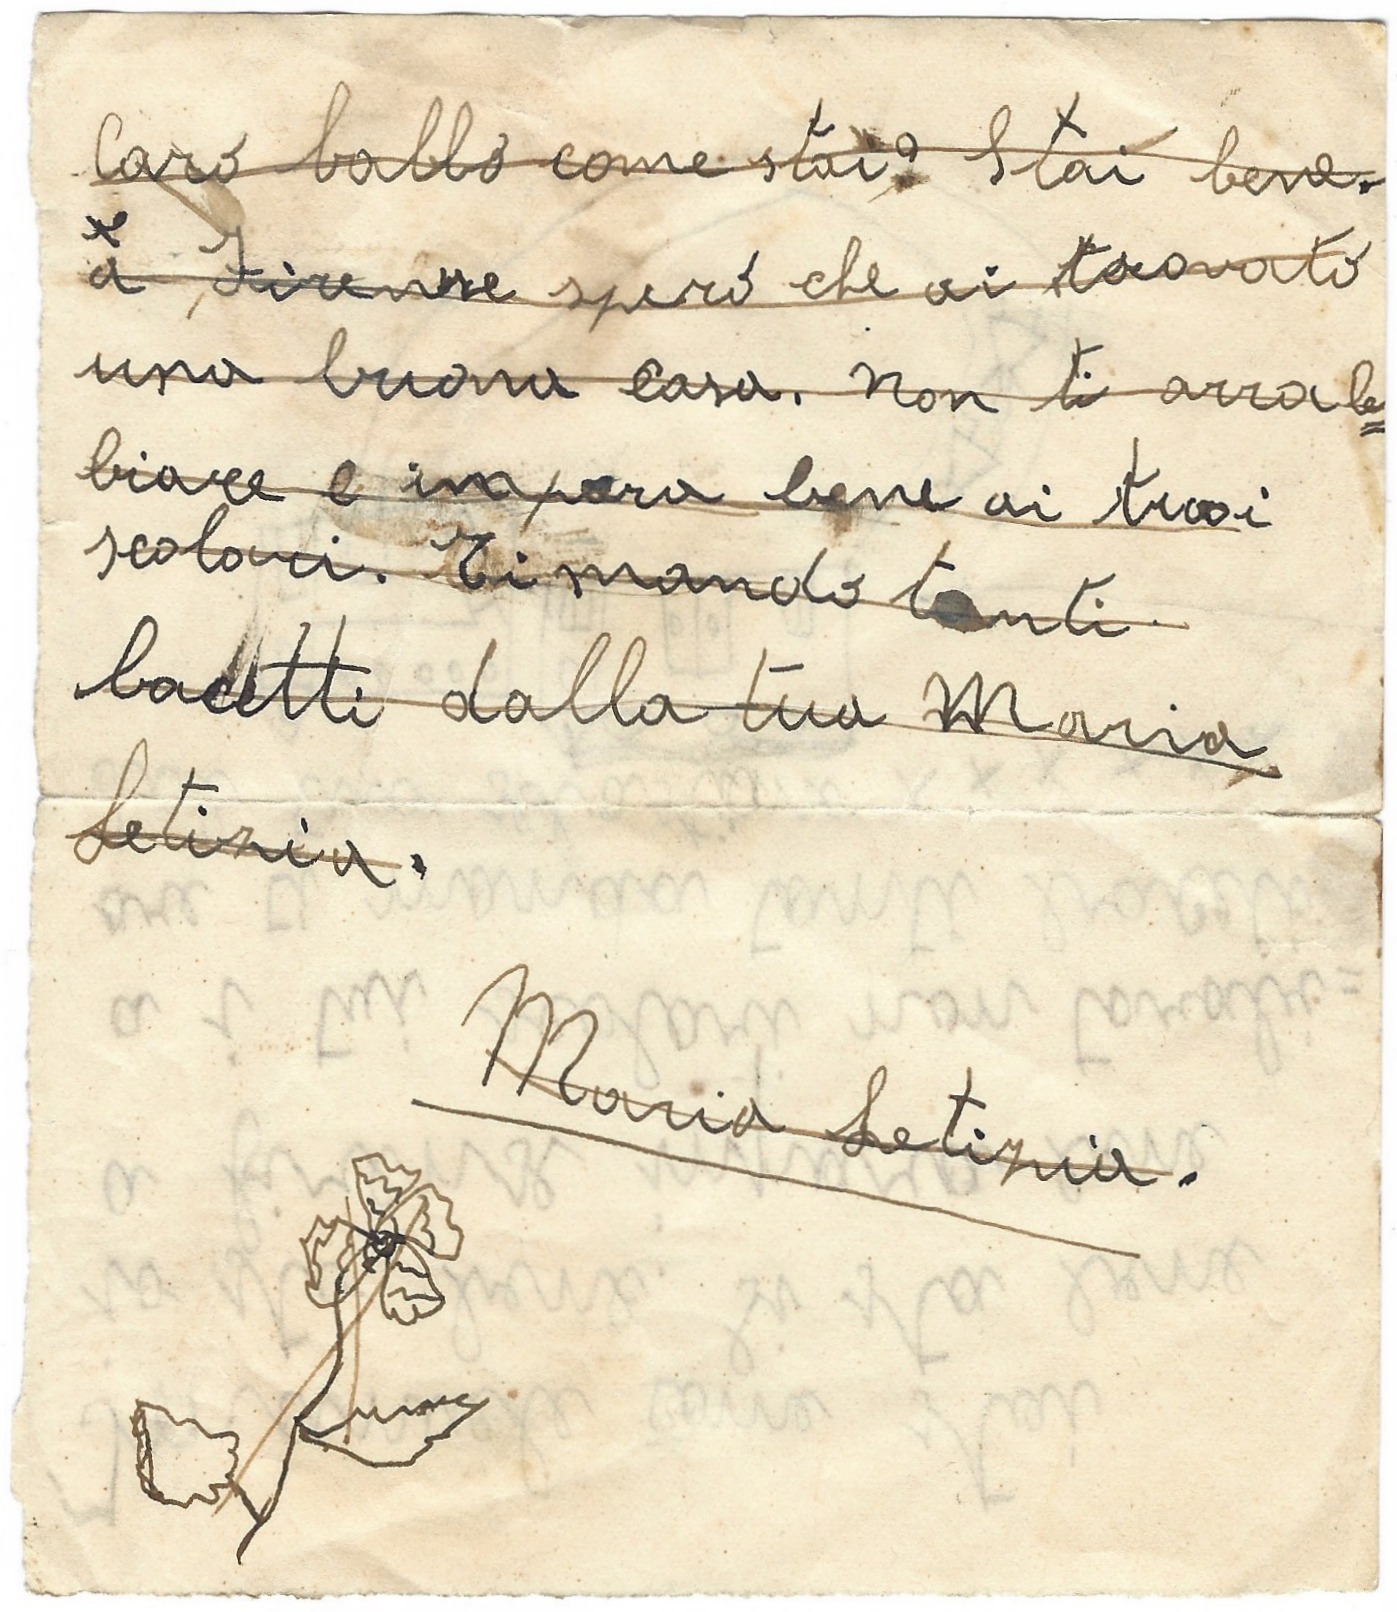 Caro babbo come stai? Stai bene.
a Firenze spero che ai trovato
una buona casa. Non ti arrab=
biare e impara bene ai tuoi
scolari. Ti mando tanti
bacetti dalla tua Maria
Letizia.
Maria Letizia.